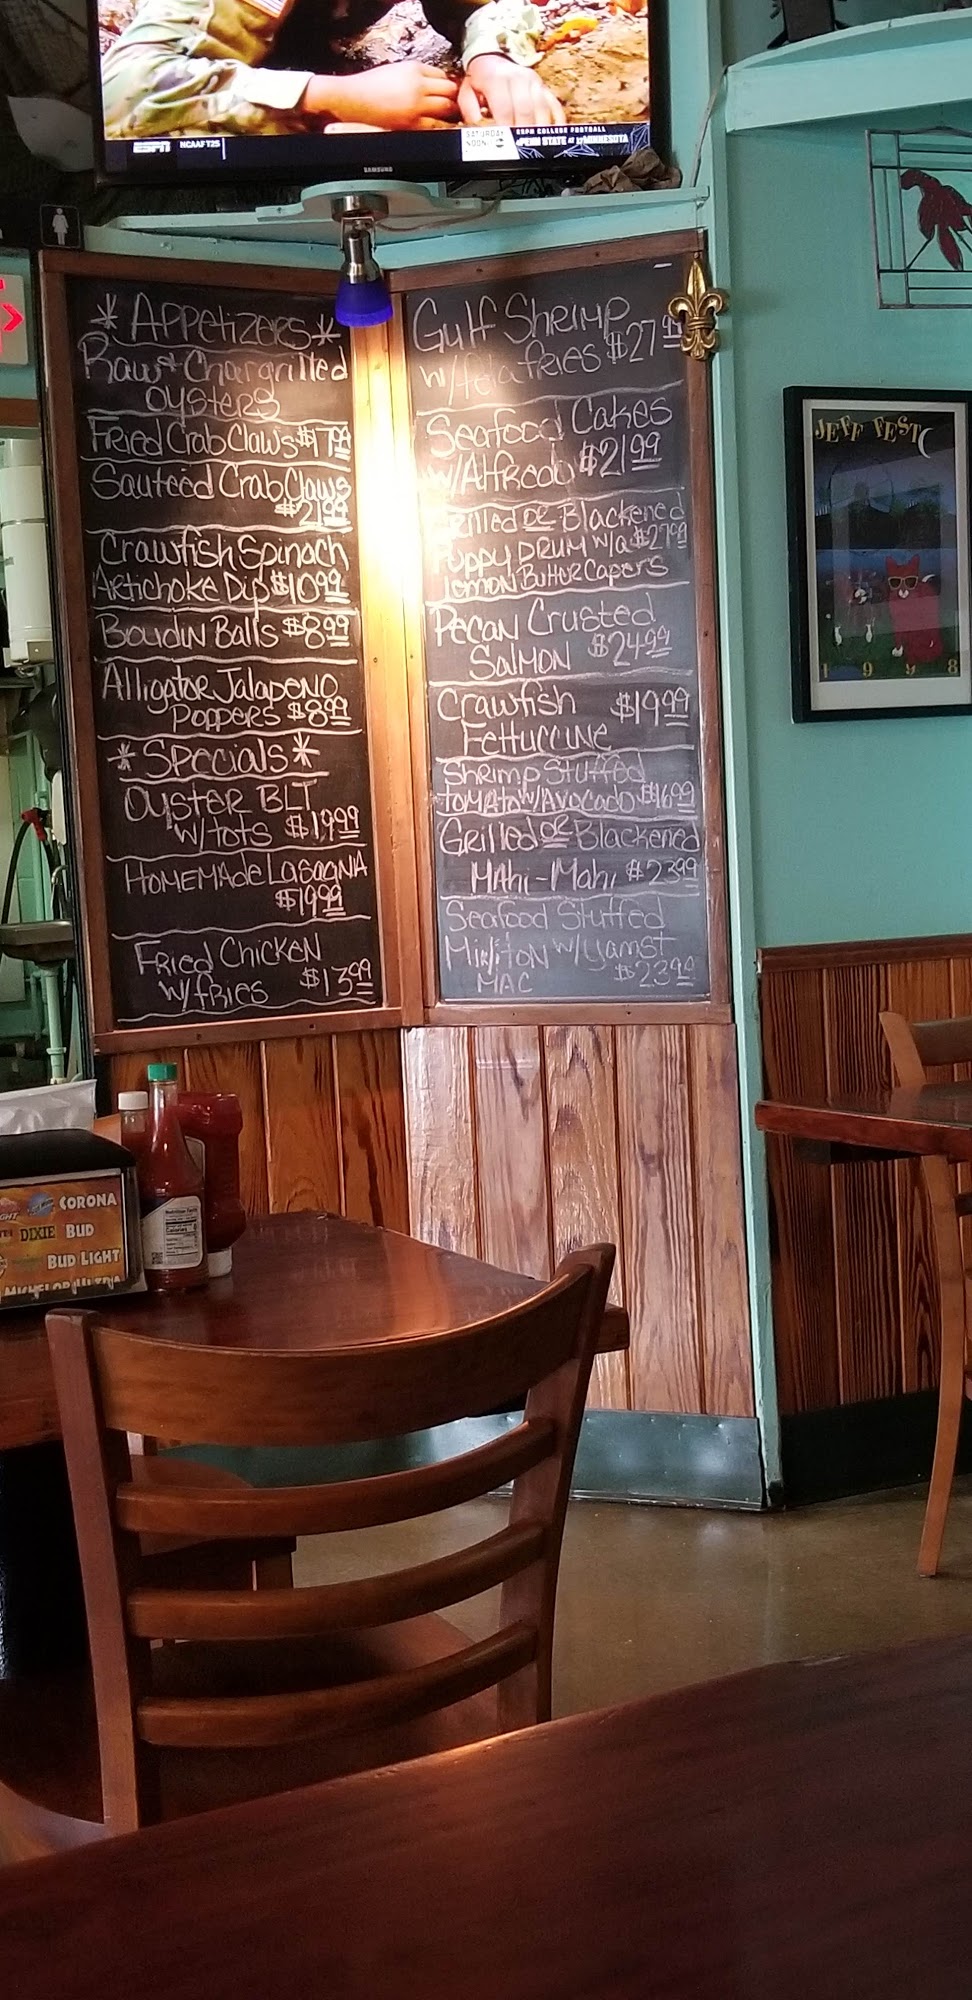 ESPN NCAAFT25
SATURDAY
NOON abc
ESPN COLLEGE FOOTBALL
PENN STATE at MINNESOTA
SAMSUNG
* Appetizers *
Raw + Chargrilled
Oysters
Fried Crab Claws $17.99
Sauteed Crab Claws
$21.99
Crawfish Spinach
Artichoke Dip $10.99
Boudin Balls $8.99
Alligator Jalapeno
Poppers $8.99
* Specials *
Oyster BLT
w/ tots $19.99
Homemade Lasagna
$19.99
Fried Chicken
w/ fries $13.99
Gulf Shrimp
w/ feta fries $27.99
Seafood Cakes
w/ Alfredo $21.99
Grilled or Blackened
Puppy Drum w/a $27.99
lemon Butter Capers
Pecan Crusted
Salmon $24.99
Crawfish $19.99
Fettuccine
Shrimp Stuffed
tomato w/ Avocado $16.99
Grilled or Blackened
Mahi-Mahi $23.99
Seafood Stuffed
Mirliton w/ yams +
MAC $23.99
JEFF FEST
1998
CORONA
DIXIE BUD
BUD LIGHT
MICHELOB ULTRA
Nutrition Facts